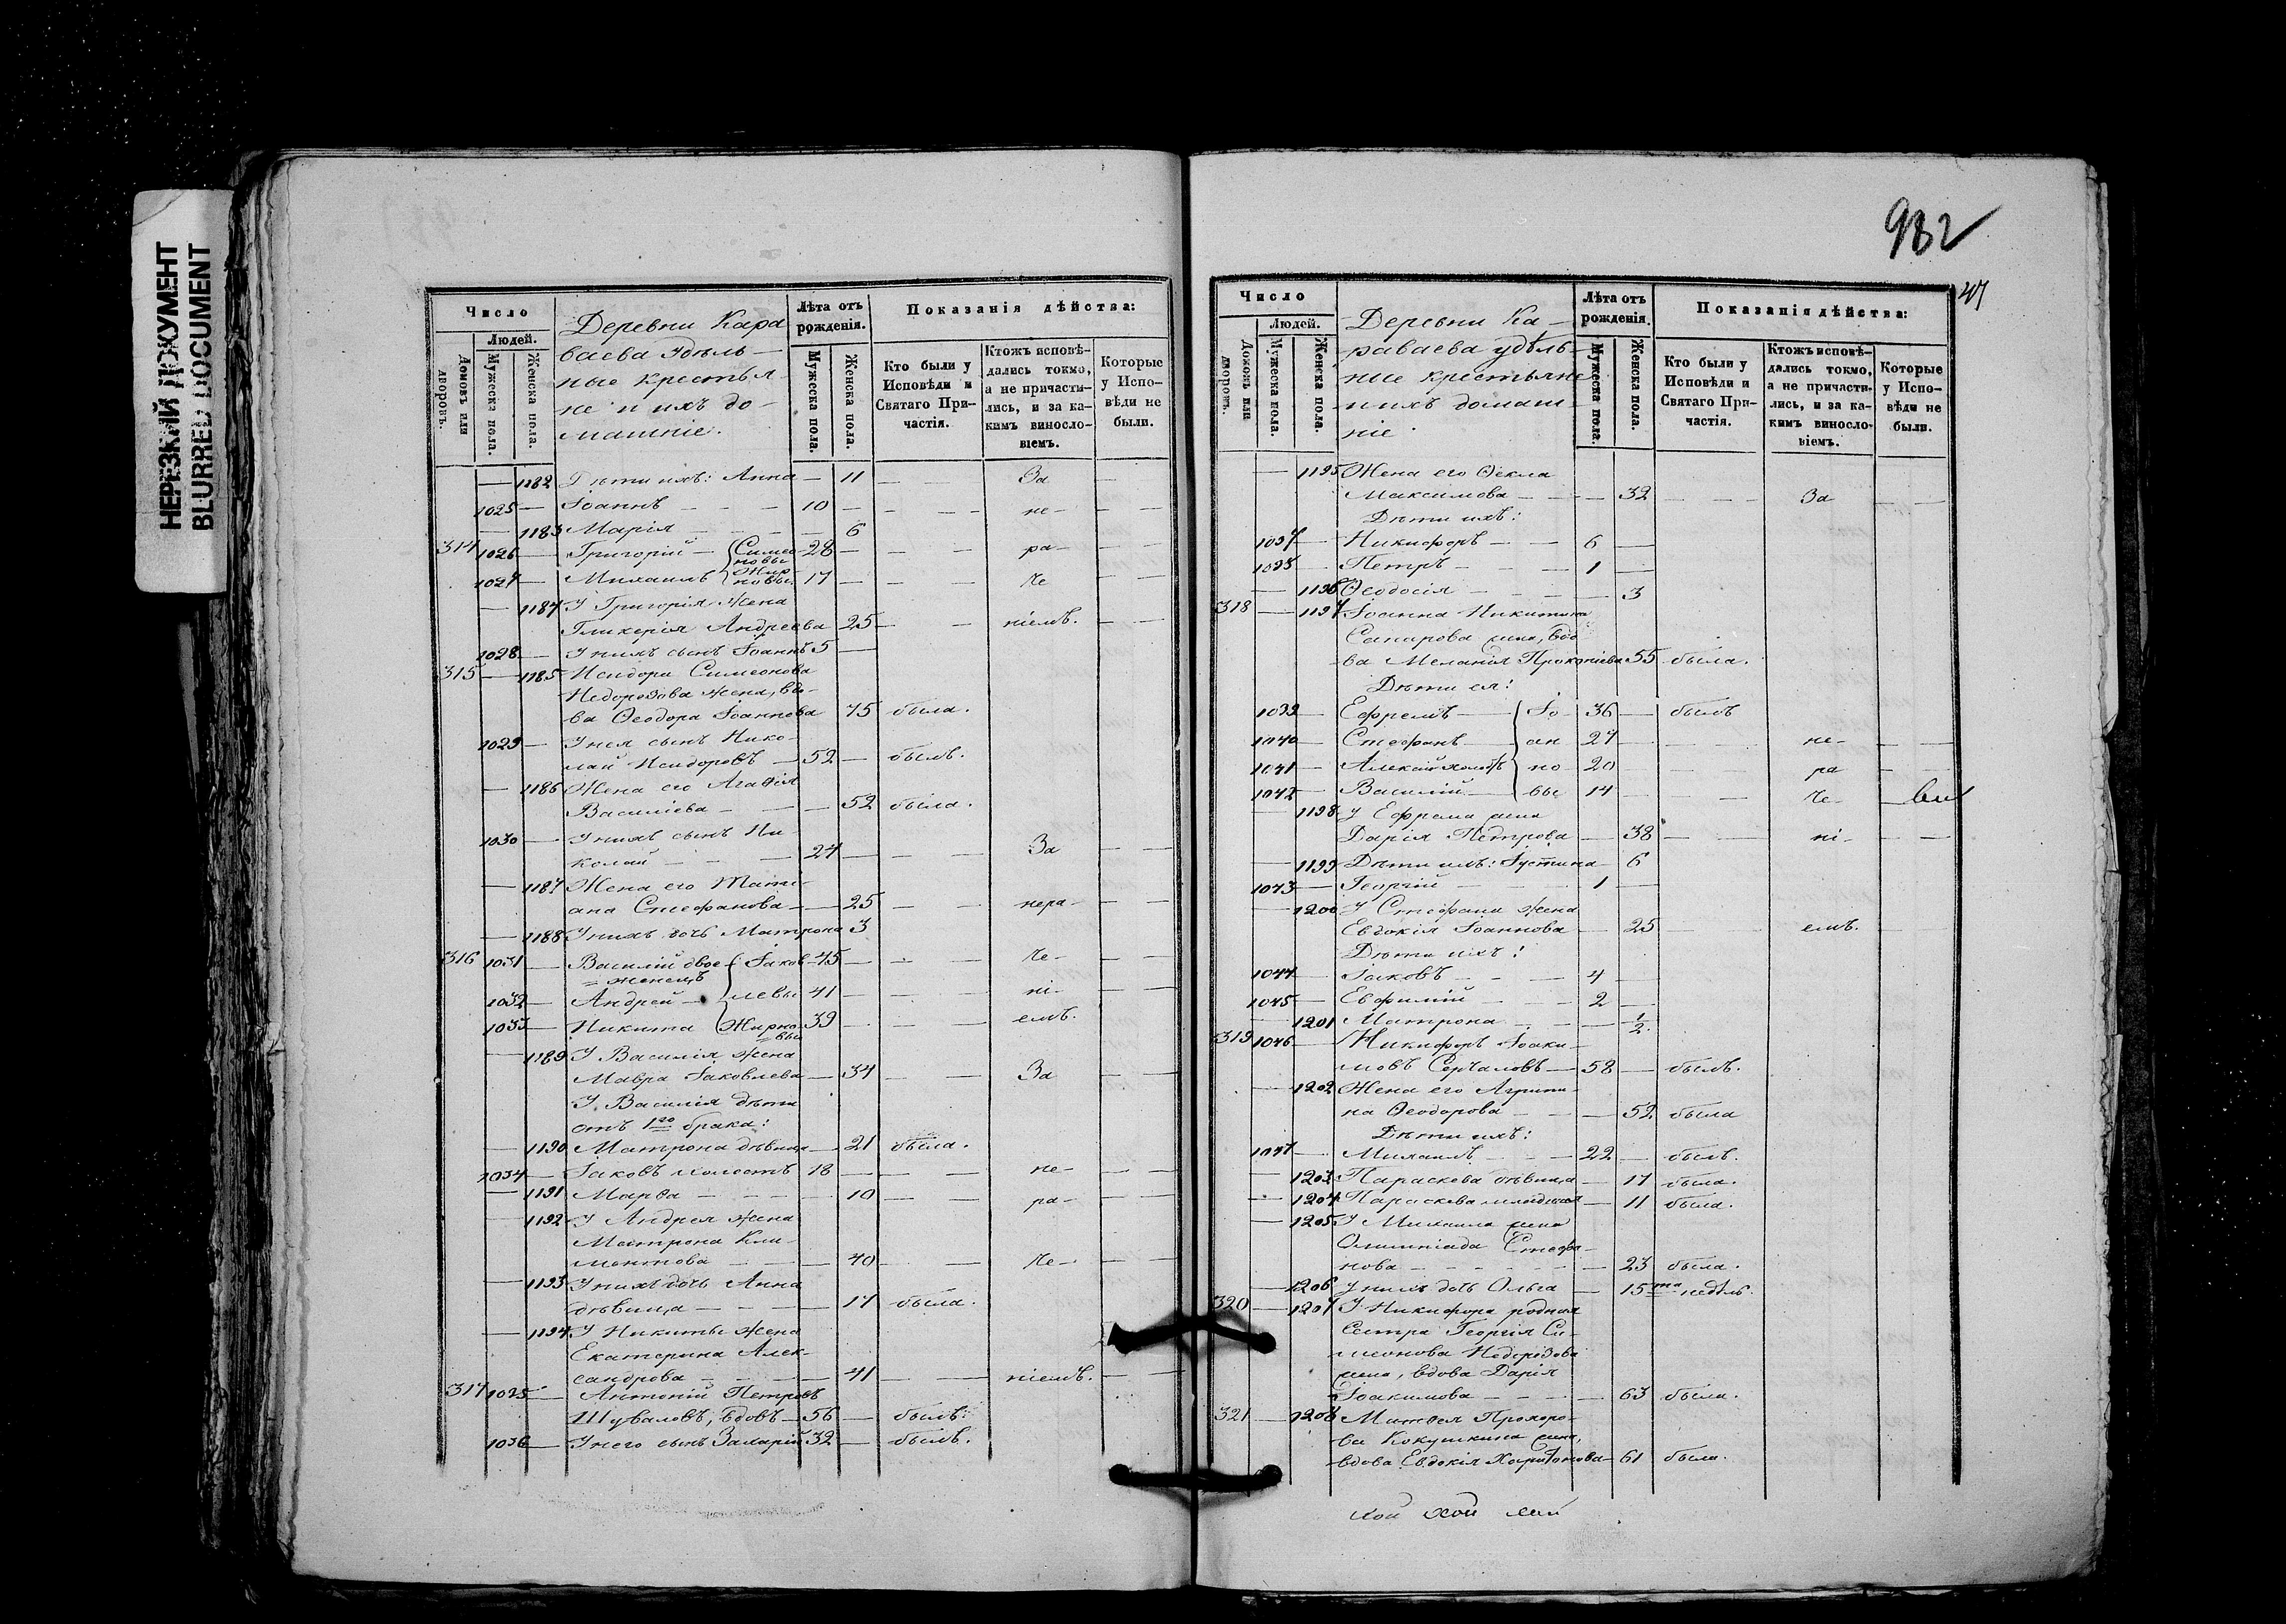 НЕРЕЗКИЙ ДОКУМЕНТ
BLURRED DOCUMENT
Число
Людей.
Домовъ или дворовъ.
Мужеска пола.
Женска пола.
Деревни Кара
ваева удѣль-
ные крестья-
не и ихъ до-
машніе.
Лѣта отъ рожденія.
Мужеска пола.
Женска пола.
Показанія дѣйства:
Кто были у Исповѣди и Святаго Причастія.
Ктожъ исповѣдались токмо, а не причастились, и за какимъ винословіемъ.
Которые у Исповѣди не были.
— 1182 Дѣти ихъ: Анна — 11 — За —
1025 — Іоаннъ — 10 — не —
— 1183 Марія — 6
314 1026 — Григорій — Симео- 28 — ра —
новы
1027 — Михаилъ Жир- 17 — че
новы
— 1184 У Григорія жена
Гликерія Андреева 25 — ніемъ. —
1028 — У нихъ сынъ Іоаннъ 5 —
315 — 1185 Исидора Симеонова
Недорезова жена, вдо-
ва Ѳеодора Іоаннова 75 была.
1029 — У нея сынъ Нико-
лай Исидоровъ — 52 — былъ.
— 1186 Жена его Агаѳія
Василіева — 52 была.
1030 — У нихъ сынъ Ни-
колай — 24 — За —
— 1187 Жена его Таті-
ана Стефанова — 25 — нера- —
— 1188 У нихъ дочь Матрона 3
316 1031 — Василій двое- Іаков- 45 — че- —
женецъ
1032 — Андрей — левы 41 — ні- —
1033 — Никита Жирно- 39 — емъ.
вы
— 1189 У Василія жена
Мавра Іаковлева — 34 — За —
У Василія дѣти
отъ 1го брака:
— 1190 Матрона дѣвица — 21 была.
1034 — Іаковъ холостъ 18 — не- —
— 1191 Марѳа — 10 — ра- —
— 1192 У Андрея жена
Матрона Кли-
ментова — 40 — че- —
— 1193 У нихъ дочь Анна
дѣвица — 17 была.
— 1194 У Никиты жена
Екатерина Алек-
сандрова — 41 — ніемъ. —
317 1035 — Антоній Петровъ
Шуваловъ, вдовъ — 56 — былъ.
1036 — У него сынъ Захарій 32 — былъ.
982
47
Число
Людей.
Домовъ или дворовъ.
Мужеска пола.
Женска пола.
Деревни Ка-
раваева удѣль-
ные крестьяне
и ихъ домаш-
ніе
Лѣта отъ рожденія.
Мужеска пола.
Женска пола.
Показанія дѣйства:
Кто были у Исповѣди и Святаго Причастія.
Ктожъ исповѣдались токмо, а не причастились, и за какимъ винословіемъ.
Которые у Исповѣди не были.
— 1195 Жена его Ѳекла
Максимова — 32 — За —
Дѣти ихъ:
1037 — Никифоръ — 6 —
1038 Петръ — 1 —
— 1196 Ѳеодосія — 3
318 — 1197 Іоанна Никитина
жена, вдо-
ва Меланія Прокопіева 55 была.
Дѣти ея:
1039 — Ефремъ — Іо- 36 — былъ
1040 — Стефанъ — ан 27 — не- —
1041 — Алексій холостъ но- 20 — ра —
1042 — Василій — вы 14 — че- —
— 1198 У Ефрема жена
Дарія Петрова — 38 — ні- —
— 1199 Дѣти ихъ: Іустина — 6
1043 — Георгій — 1 —
— 1200 У Стефана жена
Евдокія Іоаннова — 25 — емъ. —
Дѣти ихъ:
1044 — Іаковъ — 4 —
1045 — Евфимій — 2 —
— 1201 Матрона — 1/2
319 1046 — Никифоръ Іоаки-
мовъ — 58 — былъ.
— 1202 Жена его Агрипи-
на Ѳеодорова — 52 была
Дѣти ихъ:
1047 — Михаилъ — 22 — былъ.
— 1203 Параскева дѣвица — 17 была.
— 1204 Параскева младшая — 11 была.
— 1205 У Михаила жена
Олимпіада Стефа-
нова — 23 была.
— 1206 У нихъ дочь Ольга — 15ти недѣль.
320 — 1207 У Никифора родная
сестра Георгія Си-
меонова Недорезова
жена, вдова Дарія
Іоакимова — 63 была.
321 — 1208 Матѳея Прохоро-
ва Кокушкина жена,
вдова Евдокія Харитонова — 61 была.